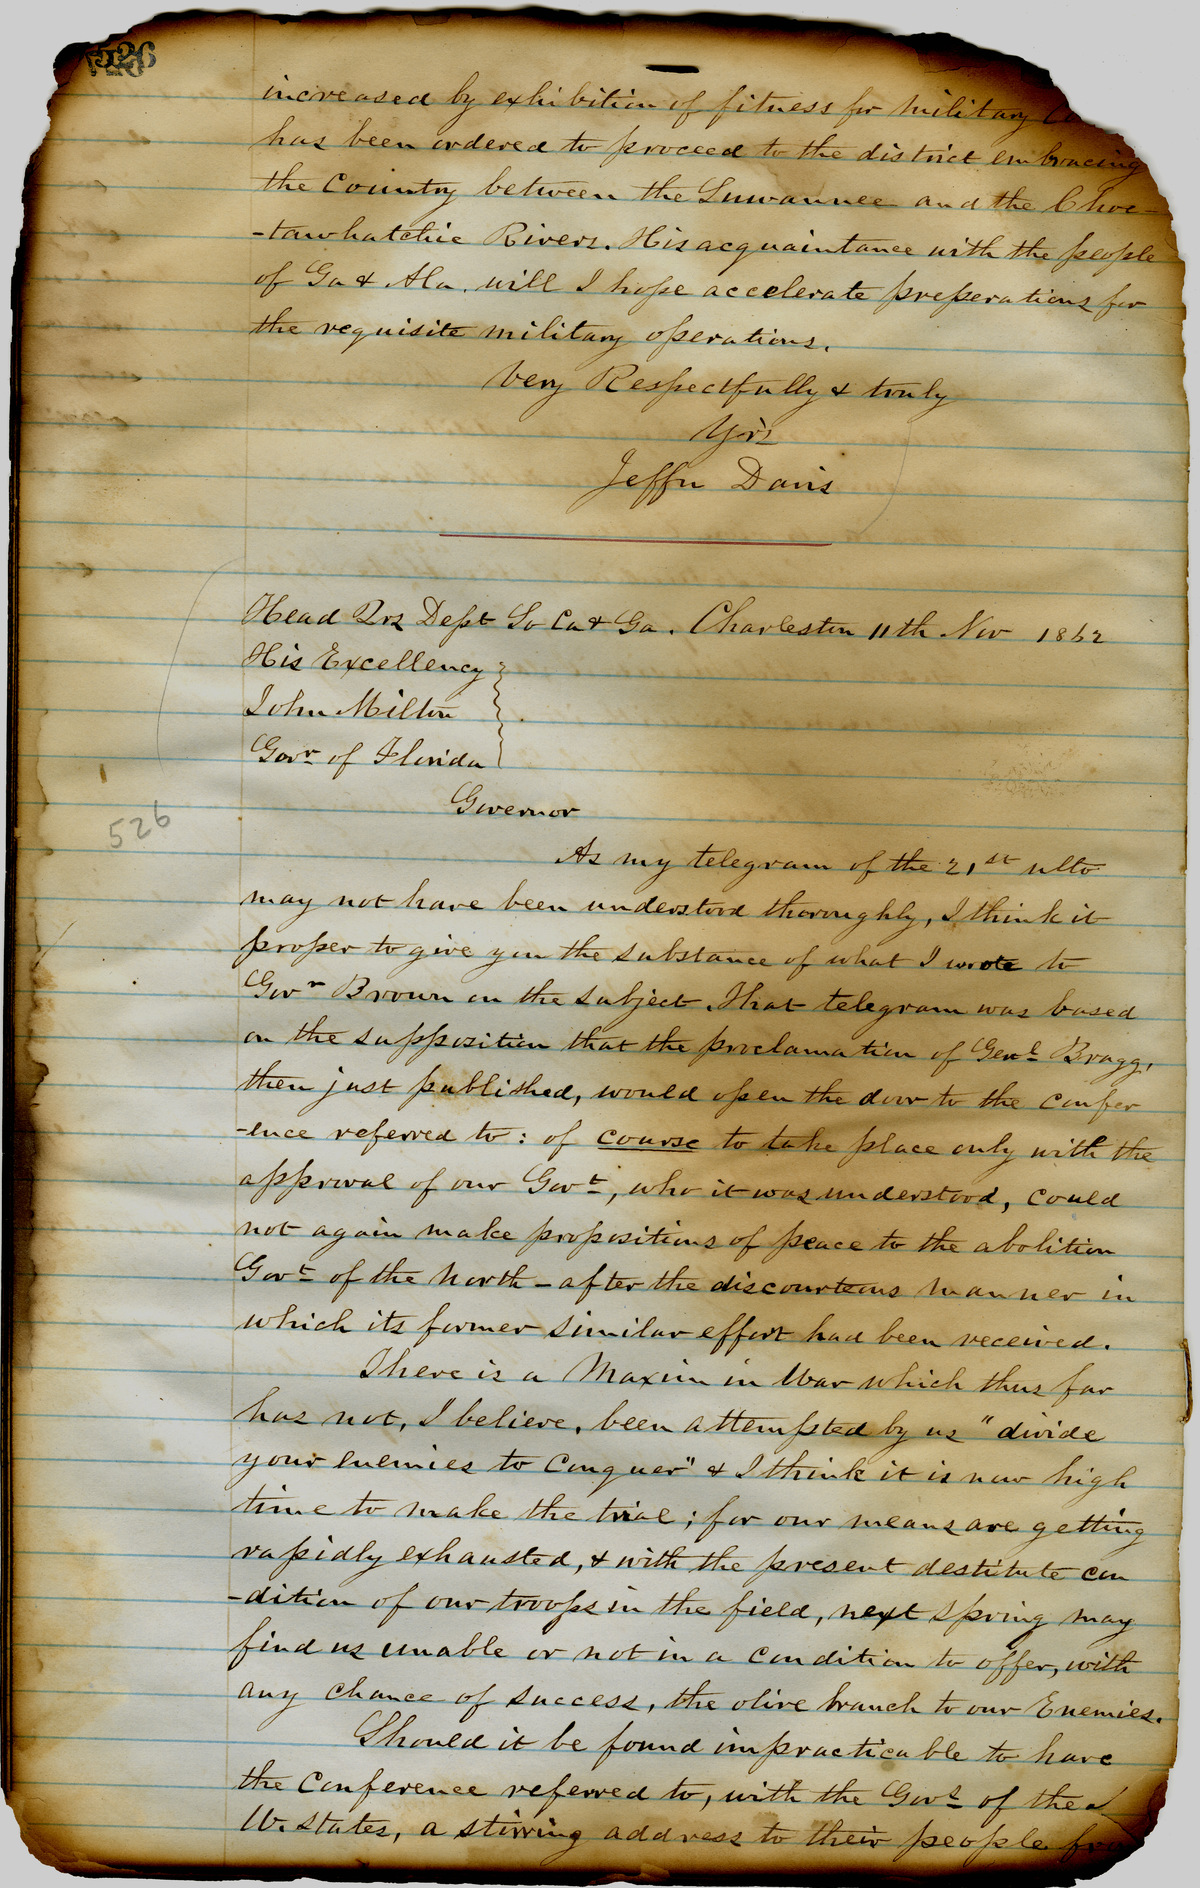 increased by exhibition of fitness for military
has been ordered to proceed to the district embracing
the Country between the Suwannee and the Choc-
-tawhatchie Rivers. His acquaintance with the people
of Ga & Ala. will I hope accelerate preperations for
the requisite military operations.
Very Respectfully & truly
Yr's
Jeffn Davis
Head Qrs Dept So Ca & Ga. Charleston 11th Nov 1862
His Excellency
John Milton
Govr of Florida
Governor
526
As my telegram of the 21st ulto
may not have been understood thoroughly, I think it
proper to give you the substance of what I wrote to
Govr Brown on the subject. That telegram was based
on the supposition that the proclamation of Genl Bragg,
then just published, would open the door to the confer
-ence referred to: of course to take place only with the
approval of our Govt, who it was understood, could
not again make propositions of peace to the abolition
Govt of the North - after the discourteous manner in
which its former similar effort had been received.
There is a Maxim in War which thus far
has not, I believe, been attempted by us "divide
your enemies to Conquer" & I think it is now high
time to make the trial; for our means are getting
rapidly exhausted, & with the present destitute con
-dition of our troops in the field, next spring may
find us unable or not in a condition to offer, with
any chance of success, the olive branch to our Enemies.
Should it be found impracticable to have
the Conference referred to, with the Govs of the
W. States, a stirring address to their people